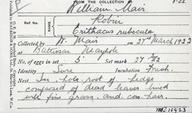 FROM THE COLLECTION
William Mair
Robin
Erithacus rubecula
Collected by W. Mair on 27th March 1922
at Maybole
No. of eggs in set 5 Set mark 27
Identity Sure Incubation Fresh
in side root of hedge
composed of dead leaves lined
with fine grass and cow hair